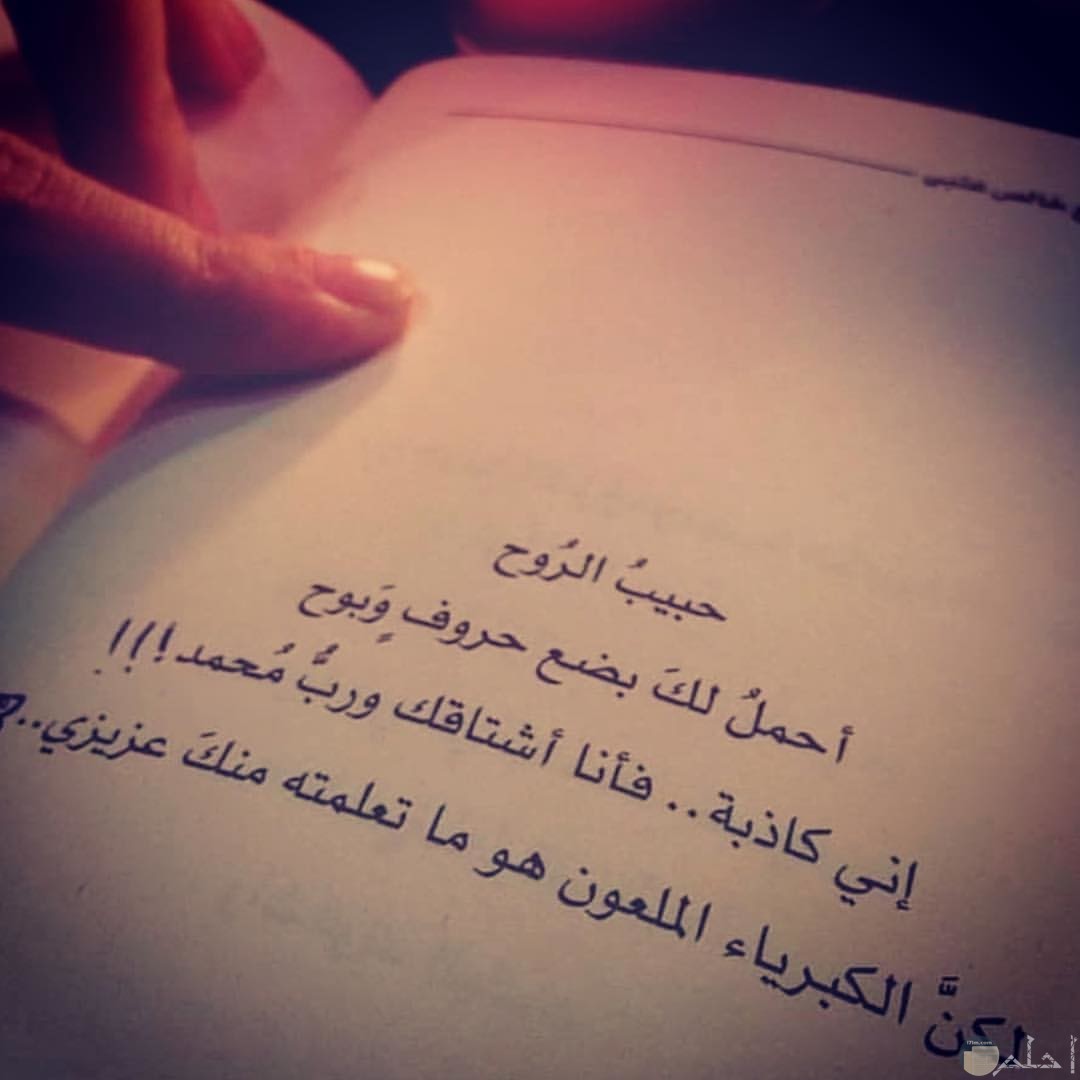 خالص قلبي
حبيبُ الرُوح
أحملُ لكَ بضع حروفٍ وَبوح
إني كاذبة.. فأنا أشتاقك وربُّ مُحمد!!!
لكنَّ الكبرياء الملعون هو ما تعلمته منكَ عزيزي..
أحلم